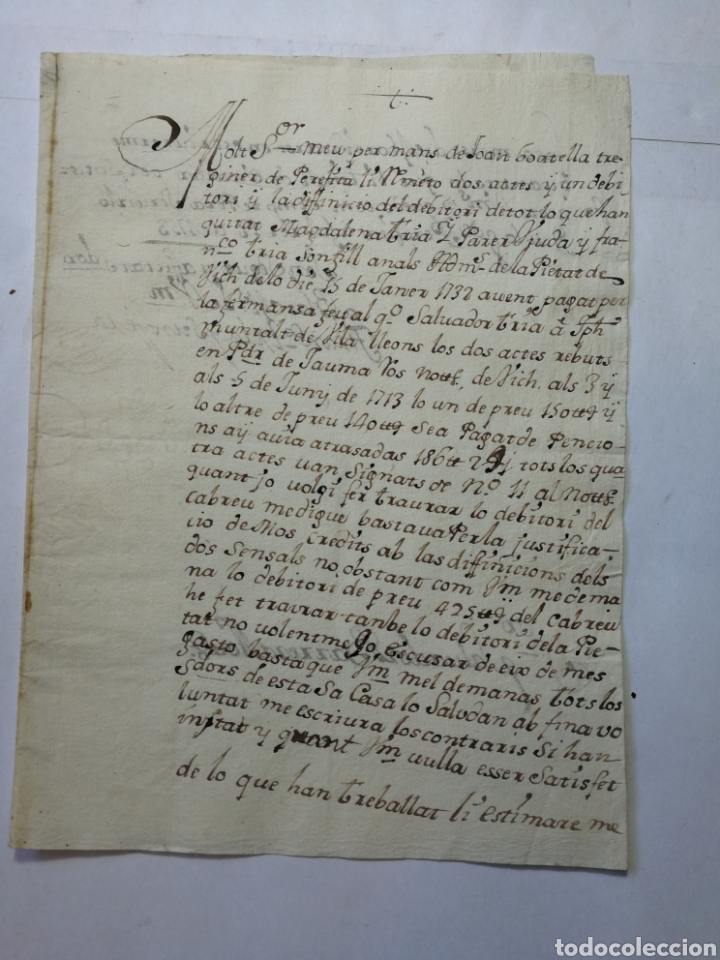 t.
Molt Sor meu per mans de Joan boatella tre-
giner de Perefita li Rmeto dos actes y un debi
tori y la diffinicio del debitori de tot lo que han
quitat Magdalena tria y Parer Viuda y fra-
nco tria son fill an als Adms de la Pietat de
Vich de lo die 15 de Janer 1732 avent pagat per
la fermansa feu al qo Salvador tria â Jph
muntalt de Vila lleons los dos actes rebuts
en Pdr de Jauma Ros Nott de Vich als 3 y
als 5 de Juny de 1713 lo un de preu 150 tt y
lo altre de preu 140 tt Sea Pagat de Pencio-
ns ay avia atrasadas 186 tt tots los qua
tra actes van Signats de No 11 al Nott
quant jo volgi fer traurar lo debitori del
cabreu me digue bastava Per la justifica-
cio de Mos credits ab las diffinicions dels
dos Sensals no obstant com Vm me dema
na lo debitori de preu 425 tt del Cabreu
he fet traurar tanbe lo debitori de la Pie-
tat no volentme Jo escusar de eix de mes
gasto basta que Vm mel demanas tots los
Sdors de esta Sa Casa lo Saludan ab fina vo
luntat me escriura los contraris Si han
instat y quant Vm vulla esser Satisfet
de lo que han treballat li estimare me
todocoleccion